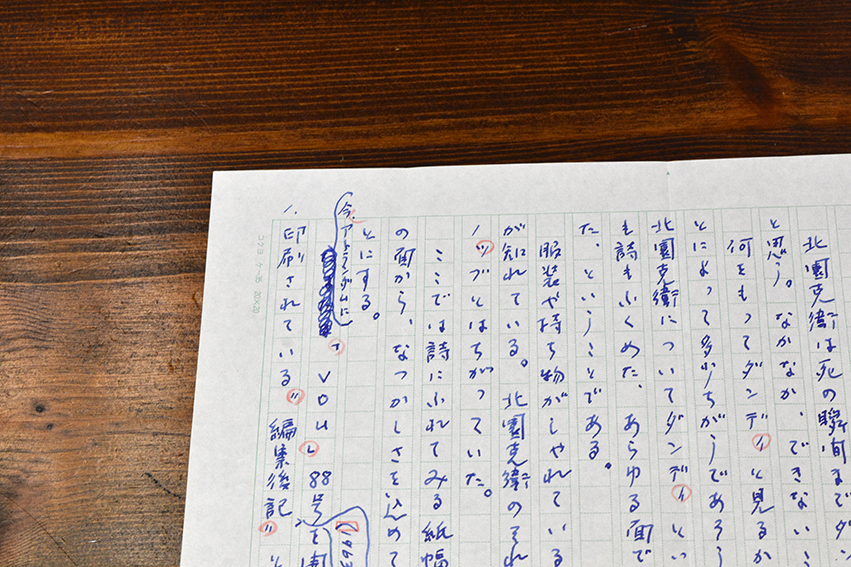 北園克衛は死の瞬間までダン
と思う。なかなか、できない
何をもってダンディと見るか
とによって多少ちがうであろう
北園克衛についてダンディとい
も詩もふくめた、あらゆる面で
た、ということである。
服装や持ち物がしゃれている
が知れている。北園克衛のそれ
ノッブとはちがっていた。
ここでは詩にふれてみる紙幅
の面から、なつかしさを込めて
とにする。
今、アートランダムに
「VOU」88号を開
(1963
印刷されている〝編集後記〟
コクヨ ケー35 20×20